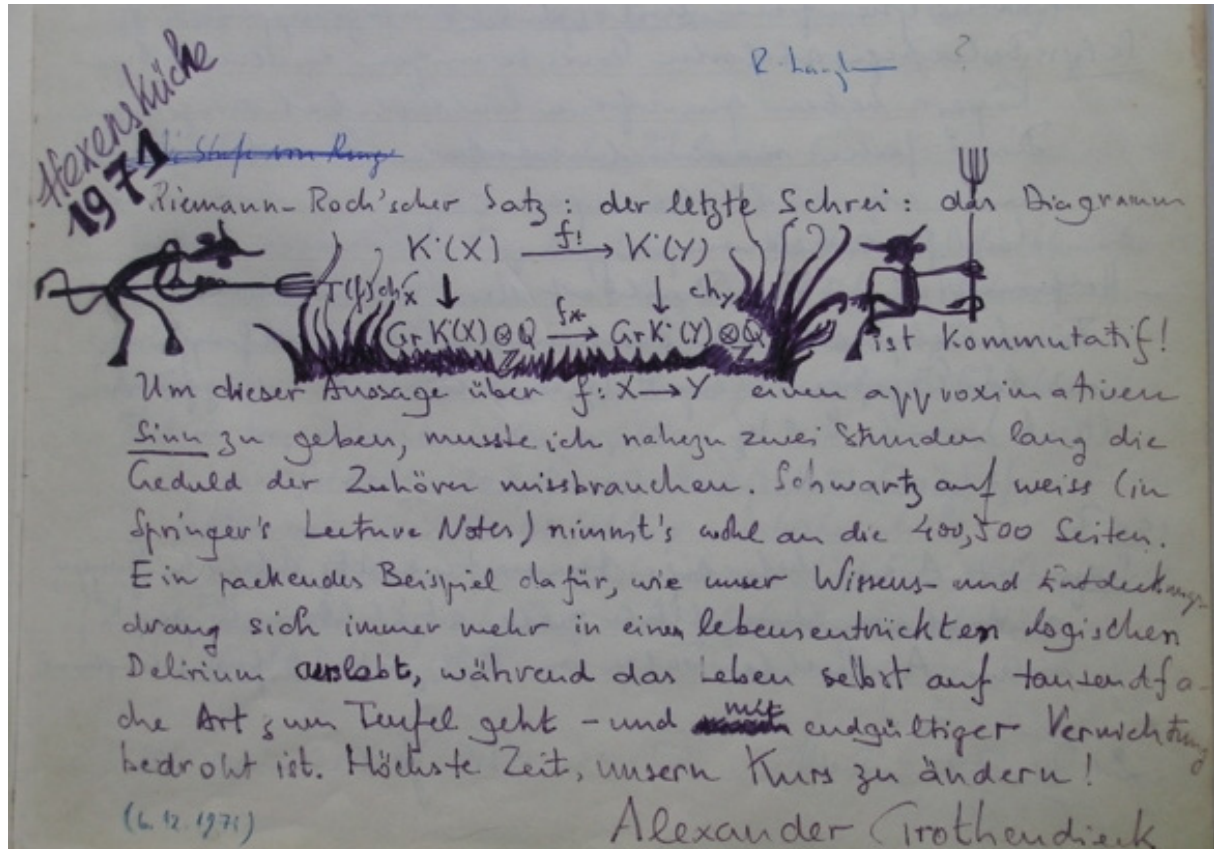 Hexenküche
1971
?
Riemann-Roch'scher Satz: der letzte Schrei: das Diagramm
K˙(X) f! → K˙(Y)
T(f)ch_X ↓ ↓ ch_Y
Gr K˙(X) ⊗_Z Q f_* → Gr K˙(Y) ⊗_Z Q
ist kommutatif!
Um dieser Aussage über f: X → Y einen approximativen
Sinn zu geben, musste ich nahezu zwei Stunden lang die
Geduld der Zuhörer missbrauchen. Schwartz auf weiss (in
Springer's Lecture Notes) nimmt's wohl an die 400, 500 Seiten.
Ein packendes Beispiel dafür, wie unser Wissens- und Entdeckungs-
drang sich immer mehr in einem lebensentrückten logischen
Delirium auslebt, während das Leben selbst auf tausendfa-
che Art zum Teufel geht – und mit endgültiger Vernichtung
bedroht ist. Höchste Zeit, unsern Kurs zu ändern!
(6.12.1971)
Alexander Grothendieck